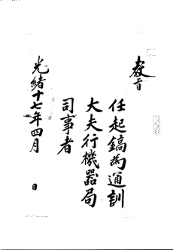 教旨
任起鎬為通訓
大夫行機器局
司事者
光緒十七年四月 日